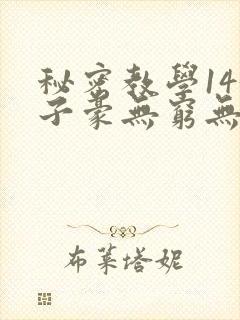 秘密教學14
子豪無窮無
布萊塔妮